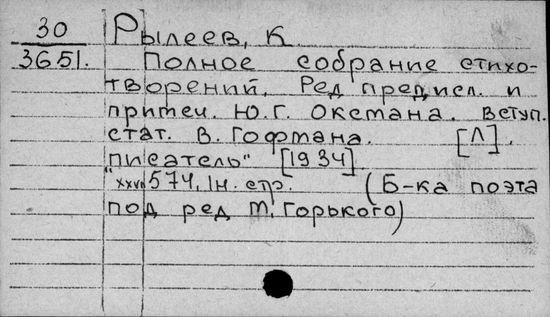 30 Рылеев, К
3651. Полное собрание стихо-
творений. Ред предисл. и
примеч. Ю.Г. Оксмана. Вступ.
стат. В. Гофмана. [Л].
писатель" [1934]
"xxvii 574, 1н. стр. (Б-ка поэта
под ред М. Горького)